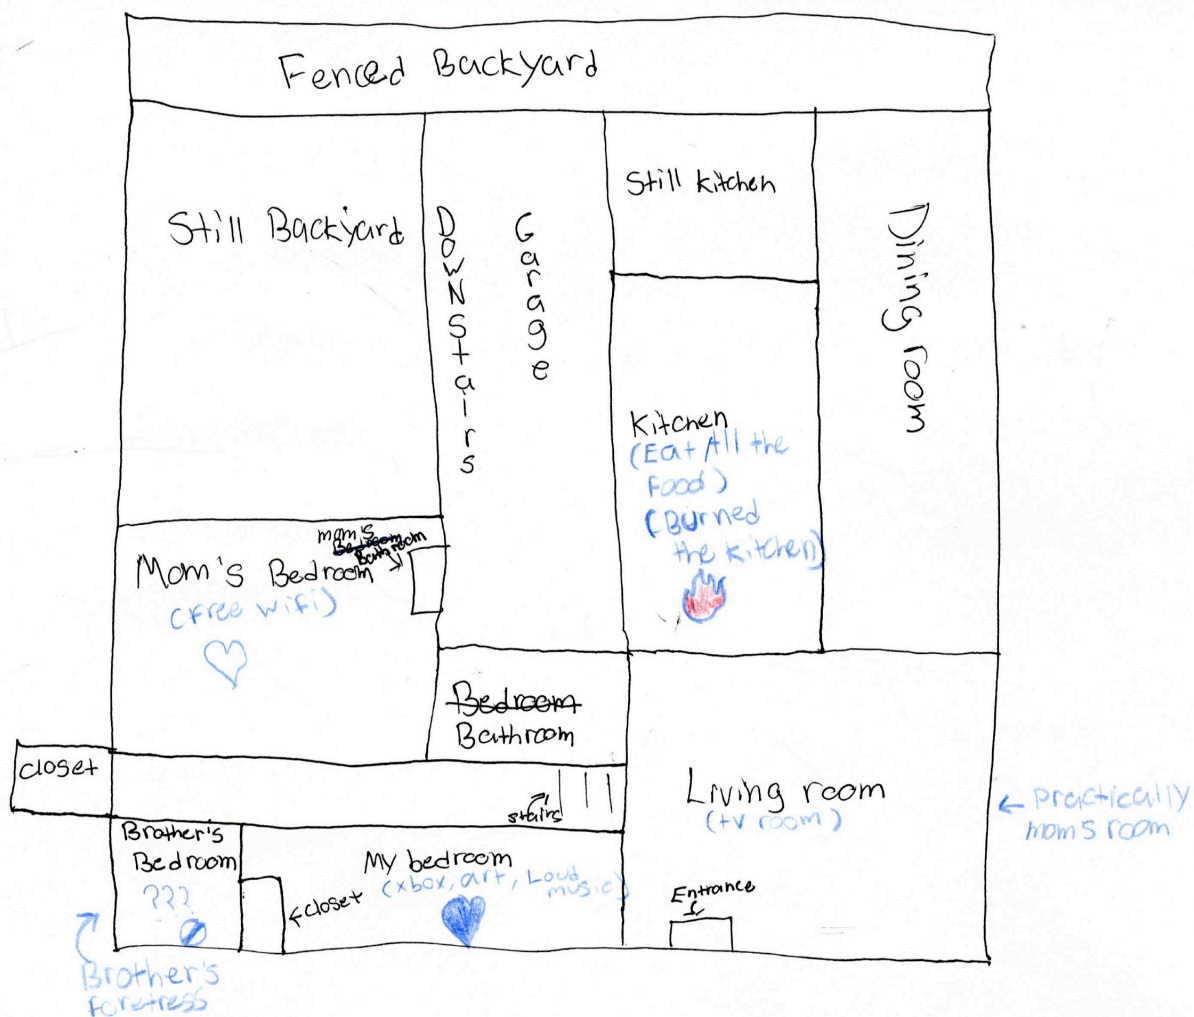 Fenced Backyard
Still Backyard
DOWNStairs
Garage
Still kitchen
Dining room
Kitchen
(Eat All the
Food)
(Burned
the kitchen)
mom's
Bedroom
Bathroom
Mom's Bedroom
(Free wifi)
Bedroom
Bathroom
closet
stairs
Living room
(tv room)
← Practically
moms room
Brother's
Bedroom
???
My bedroom
(xbox, art, Loud
music)
←closet
Entrance
Brother's
foretress